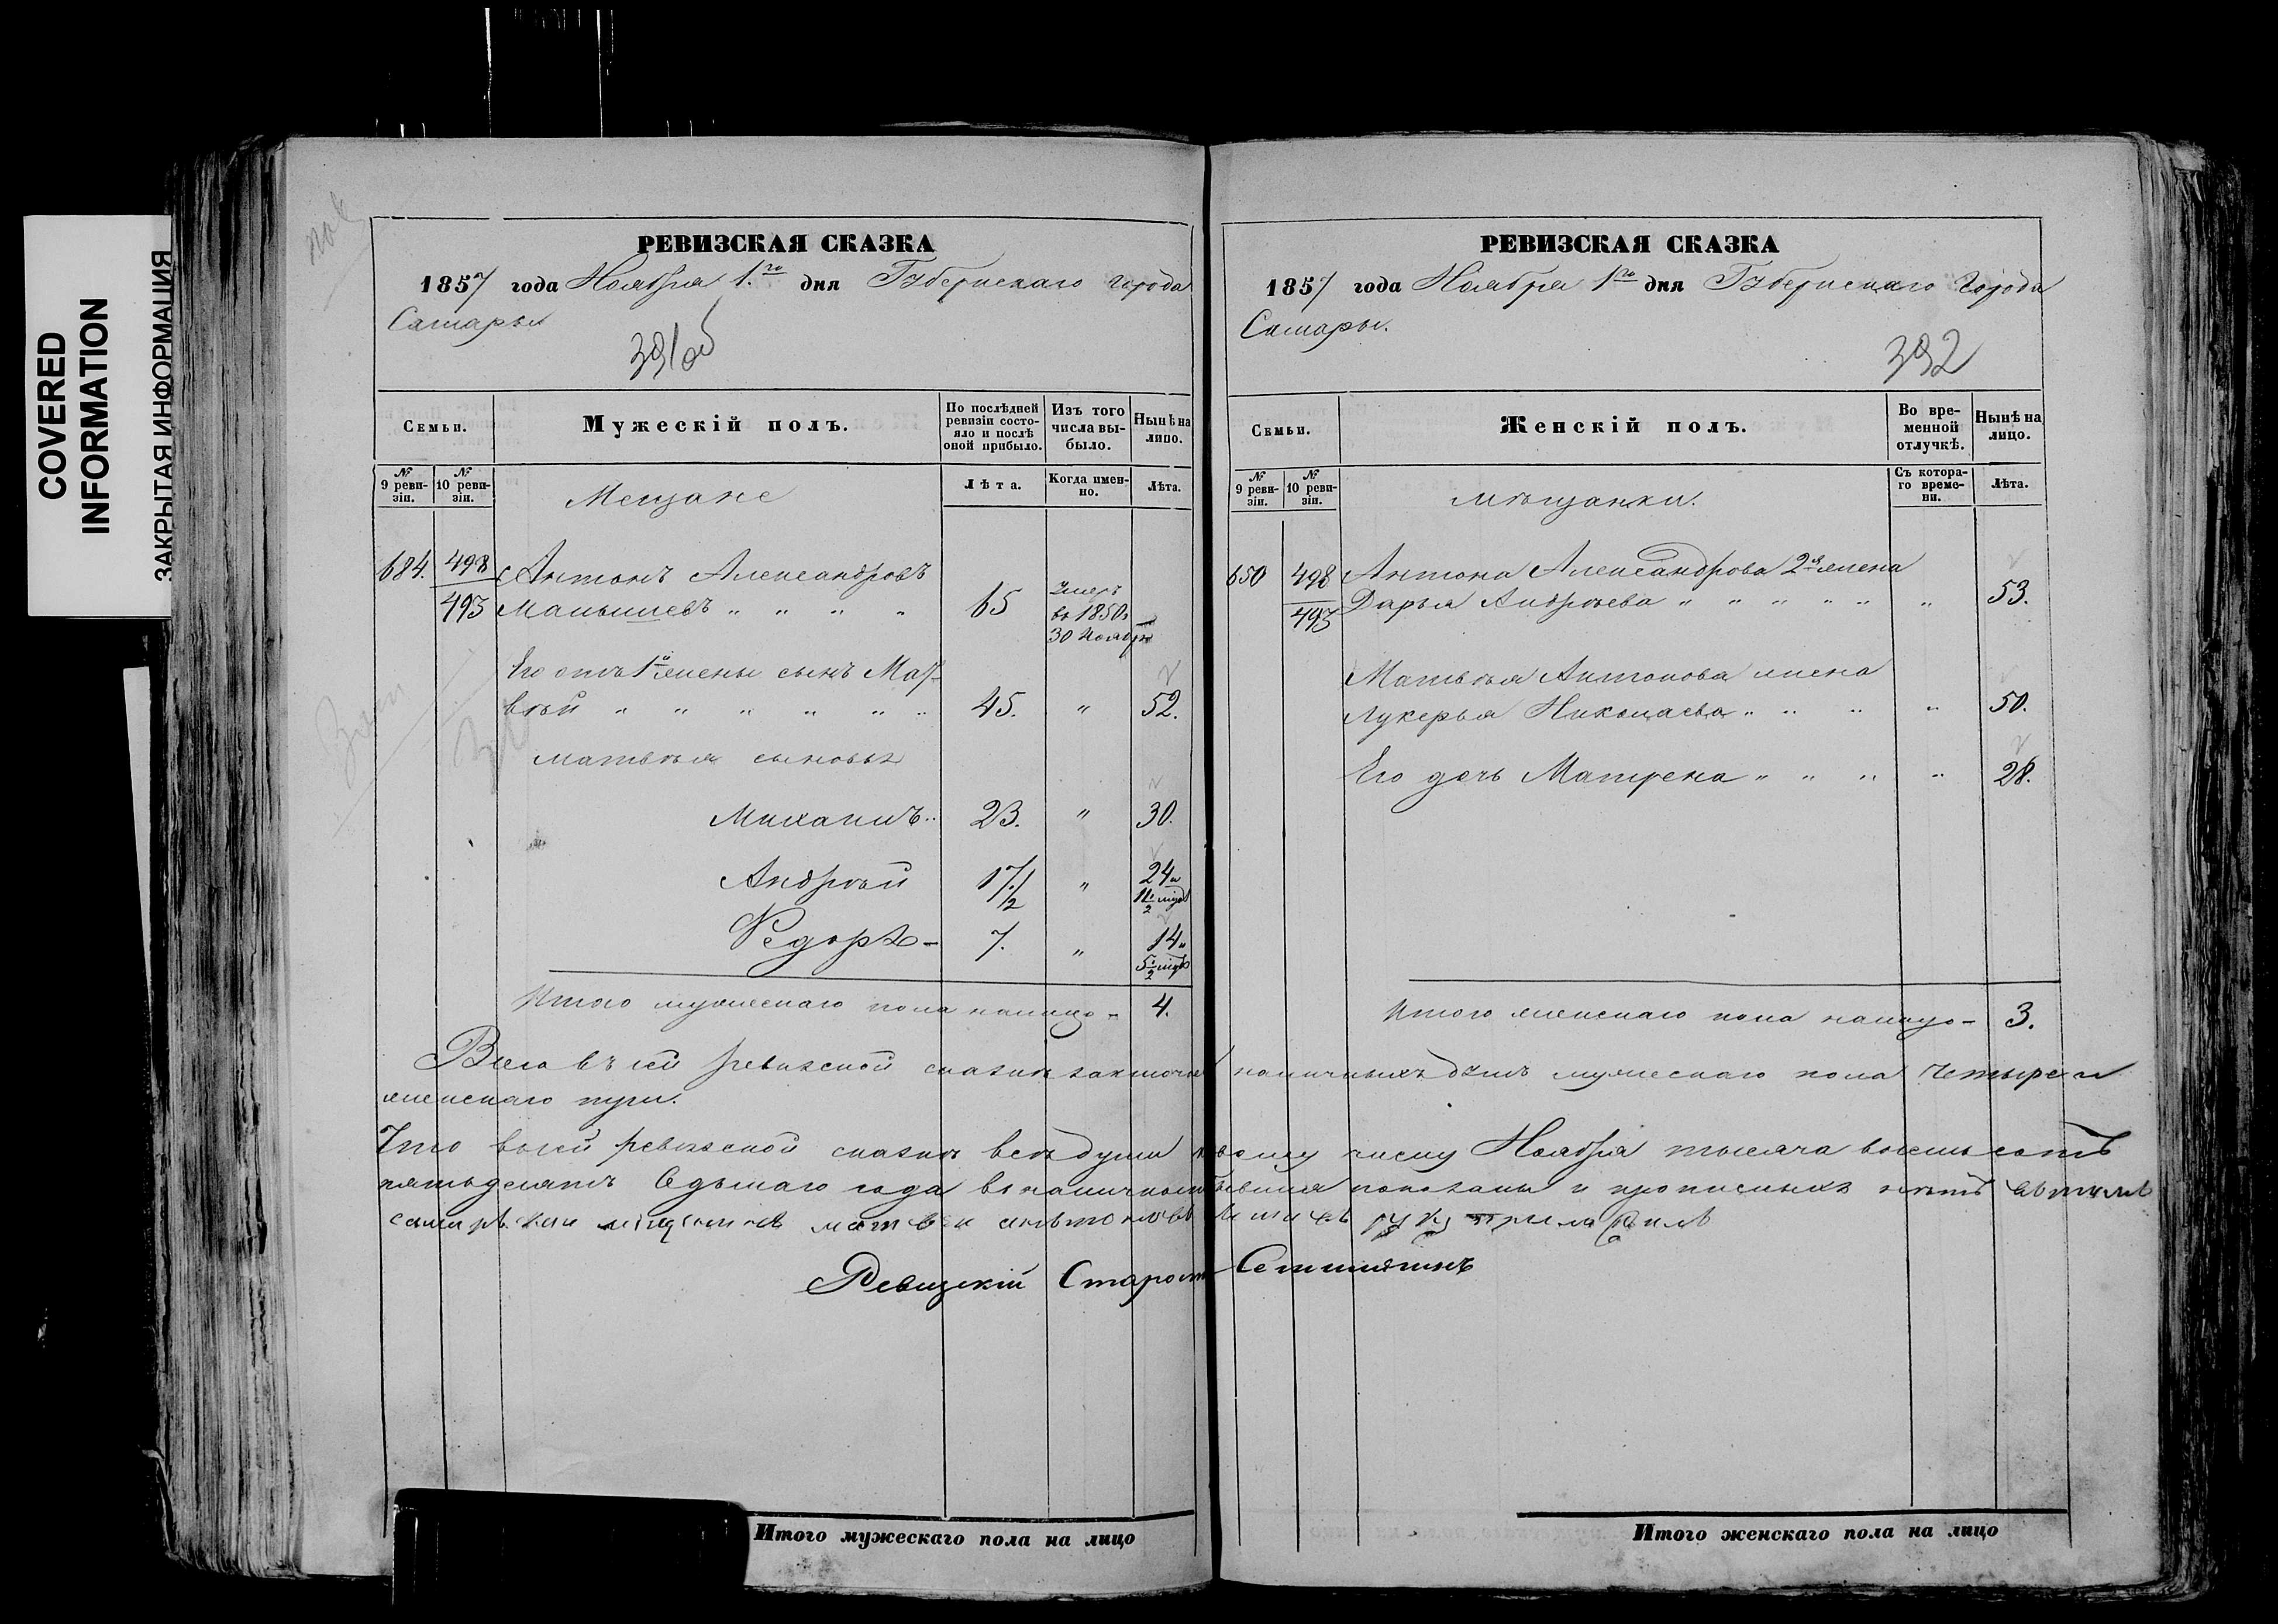 COVERED
INFORMATION
ЗАКРЫТАЯ ИНФОРМАЦИЯ
РЕВИЗСКАЯ СКАЗКА
1857 года Ноября 1.го дня Губернскаго города
Самары
391об
Семьи.
Мужескій полъ.
По послѣдней
ревизіи состо-
яло и послѣ
оной прибыло.
Изъ того
числа вы-
было.
Нынѣ на
лицо.
№
9 реви-
зіи.
№
10 реви-
зіи.
Мещане
Лѣта.
Когда имен-
но.
Лѣта.
684. 498 Антонъ Александровъ
493 Малышевъ " " " " 65 Умеръ
въ 1850г
30 Ноября
Его отъ 1й жены сынъ Мат-
вѣй " " " " " " 45. " 52.
Матвѣя сыновья
Михаилъ " 23. " 30.
Андрѣй 17 1/2 " 24 и
11 1/2 мѣс
Ѳедоръ - 7. " 14 и
5 1/2 мѣс
Итого мужескаго пола налицо - 4.
РЕВИЗСКАЯ СКАЗКА
1857 года Ноября 1го дня Губернскаго города
Самары.
392
Семьи.
Женскій полъ.
Во вре-
менной
отлучкѣ.
Нынѣ на
лицо.
№
9 реви-
зіи.
№
10 реви-
зіи.
мѣщанки.
Съ котора-
го време-
ни.
Лѣта.
650 498 Антона Александрова 2я жена
493 Дарья Андрѣева " " " " " " 53.
Матвѣя Антонова жена
Лукерья Николаева " " " " 50.
Его дочь Матрена " " " " 28.
Итого женскаго пола налицо - 3.
Всего въ сей ревизской сказкѣ наличныхъ душъ мужескаго пола четыре и
женскаго три.
Что въ сей ревизской сказкѣ всѣ души къ 1му числу Ноября тысяча восемьсотъ
пятьдесятъ седьмаго года въ наличности бывшія показаны и прописныхъ нѣтъ въ томъ
самарской мещенинъ матвей антоновъ руку приложилъ
Ревизскій Староста
Итого мужескаго пола на лицо
Итого женскаго пола на лицо